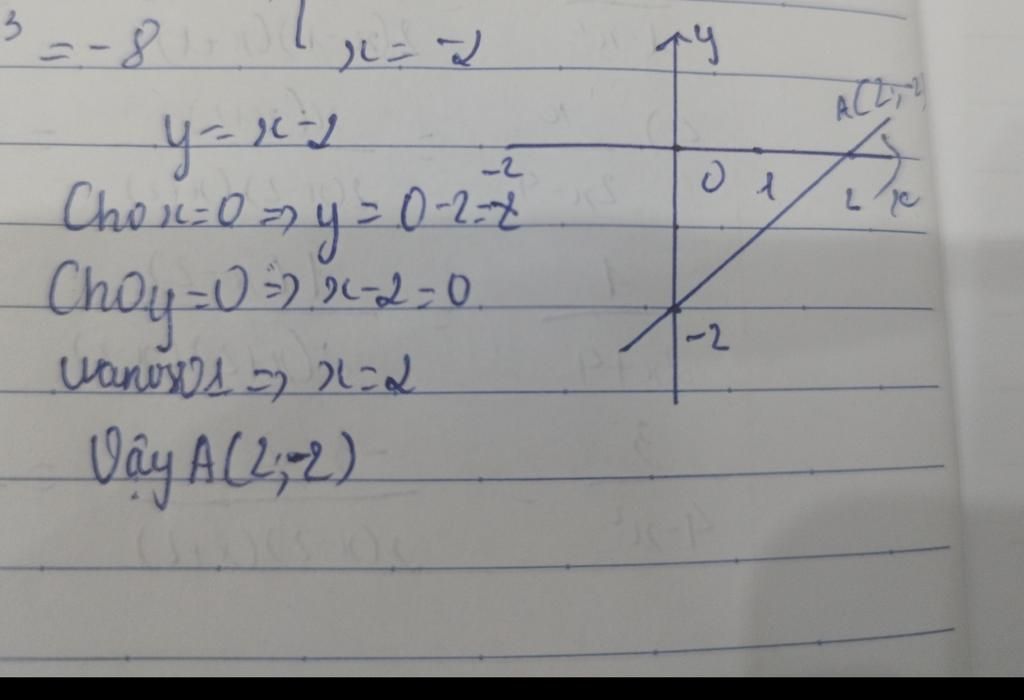 3 = -8 x = -2
y = x-2
Cho x=0 => y = 0-2=-2
Cho y=0 => x-2=0
=> x=2
Vậy A(2;-2)
y
A(2;-2
-2 0 1 2 x
-2